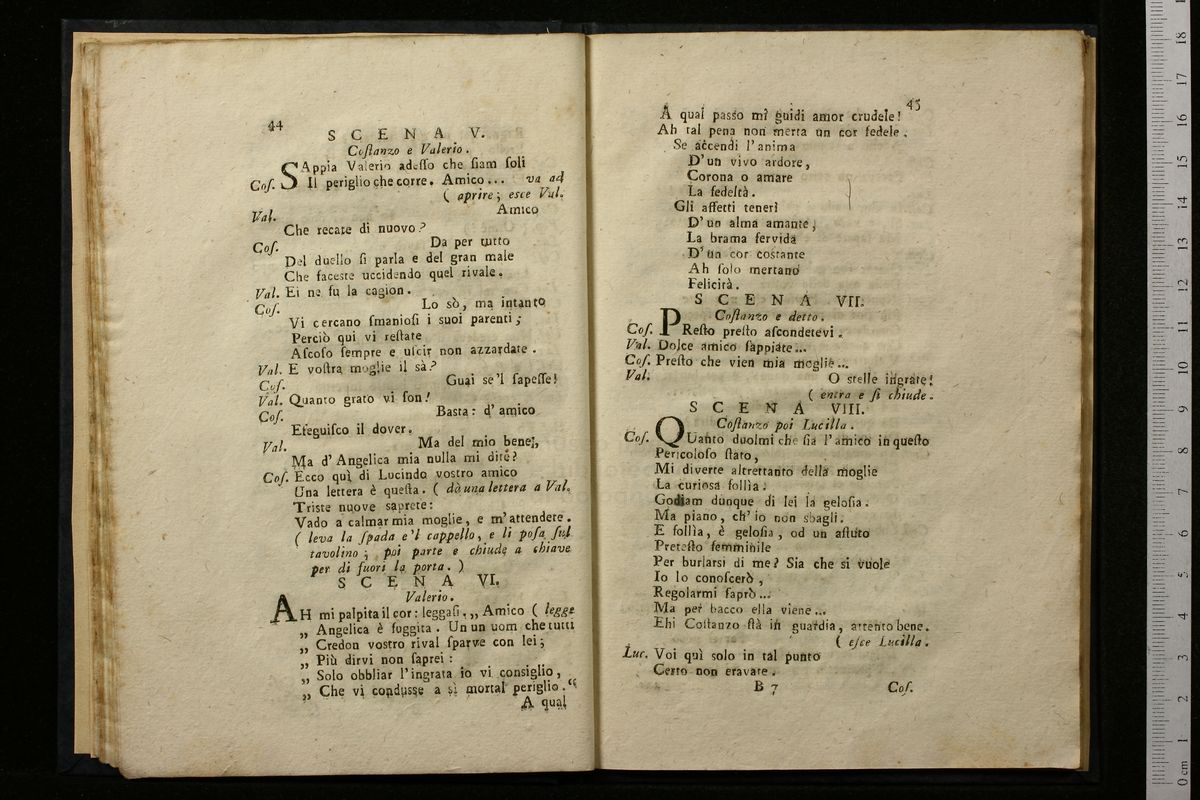 44
SCENA V.
Costanzo e Valerio.
Cos. SAppia Valerio adeſſo che ſiam ſoli
Il periglio che corre. Amico... va ad
( aprire; esce Val.
Val. Amico
Che recate di nuovo?
Cos. Da per tutto
Del duello ſi parla e del gran male
Che faceste uccidendo quel rivale.
Val. Ei ne fu la cagion.
Cos. Lo sò, ma intanto
Vi cercano ſmanioſi i suoi parenti;
Perciò qui vi reſtate
Aſcoſo ſempre e uſcir non azzardate.
Val. E voſtra moglie il sà?
Cos. Guai se'l ſapeſſe!
Val. Quanto grato vi ſon!
Cos. Basta: d'amico
Eſeguiſco il dover.
Val. Ma del mio bene!,
Ma d'Angelica mia nulla mi dite?
Cos. Ecco quì di Lucindo vostro amico
Una lettera è queſta. ( dà una lettera a Val.
Triste nuove saprete:
Vado a calmar mia moglie, e m'attendere.
( leva la ſpada e'l cappello, e li poſa ſul
tavolino; poi parte e chiude a chiave
per di fuori la porta. )
SCENA VI.
Valerio.
AH mi palpita il cor: leggaſi. „ Amico ( legge
„ Angelica è fuggita. Un un uom che tutti
„ Credon vostro rival ſparve con lei;
„ Più dirvi non ſaprei:
„ Solo obbliar l'ingrata io vi conſiglio,
„ Che vi condusse a sì mortal periglio. “
A qual
45
A qual passo mi guidi amor crudele!
Ah tal pena non merta un cor fedele.
Se accendi l'anima
D'un vivo ardore,
Corona o amare
La fedeltà.
Gli affetti teneri
D'un alma amante,
La brama fervida
D'un cor costante
Ah ſolo mertano
Felicità.
SCENA VII.
Coſtanzo e detto.
Cos. PReſto preſto aſcondetevi.
Val. Dolce amico ſappiate...
Cos. Preſto che vien mia moglie...
Val. O stelle ingrate!
( entra e ſi chiude.
SCENA VIII.
Coſtanzo poi Lucilla.
Cos. QUanto duolmi che ſia l'amico in queſto
Pericoloſo ſtato,
Mi diverte altrettanto della moglie
La curiosa follìa.
Godiam dunque di lei la gelosia.
Ma piano, ch'io non sbagli.
E follìa, è geloſia, od un aſtuto
Pretesto femminile
Per burlarsi di me? Sia che si vuole
Io lo conoſcerò,
Regolarmi ſaprò...
Ma per bacco ella viene...
Ehi Costanzo ſtà in guardia, attento bene.
( eſce Lucilla.
Luc. Voi quì solo in tal punto
Certo non eravate.
B 7 Cos.